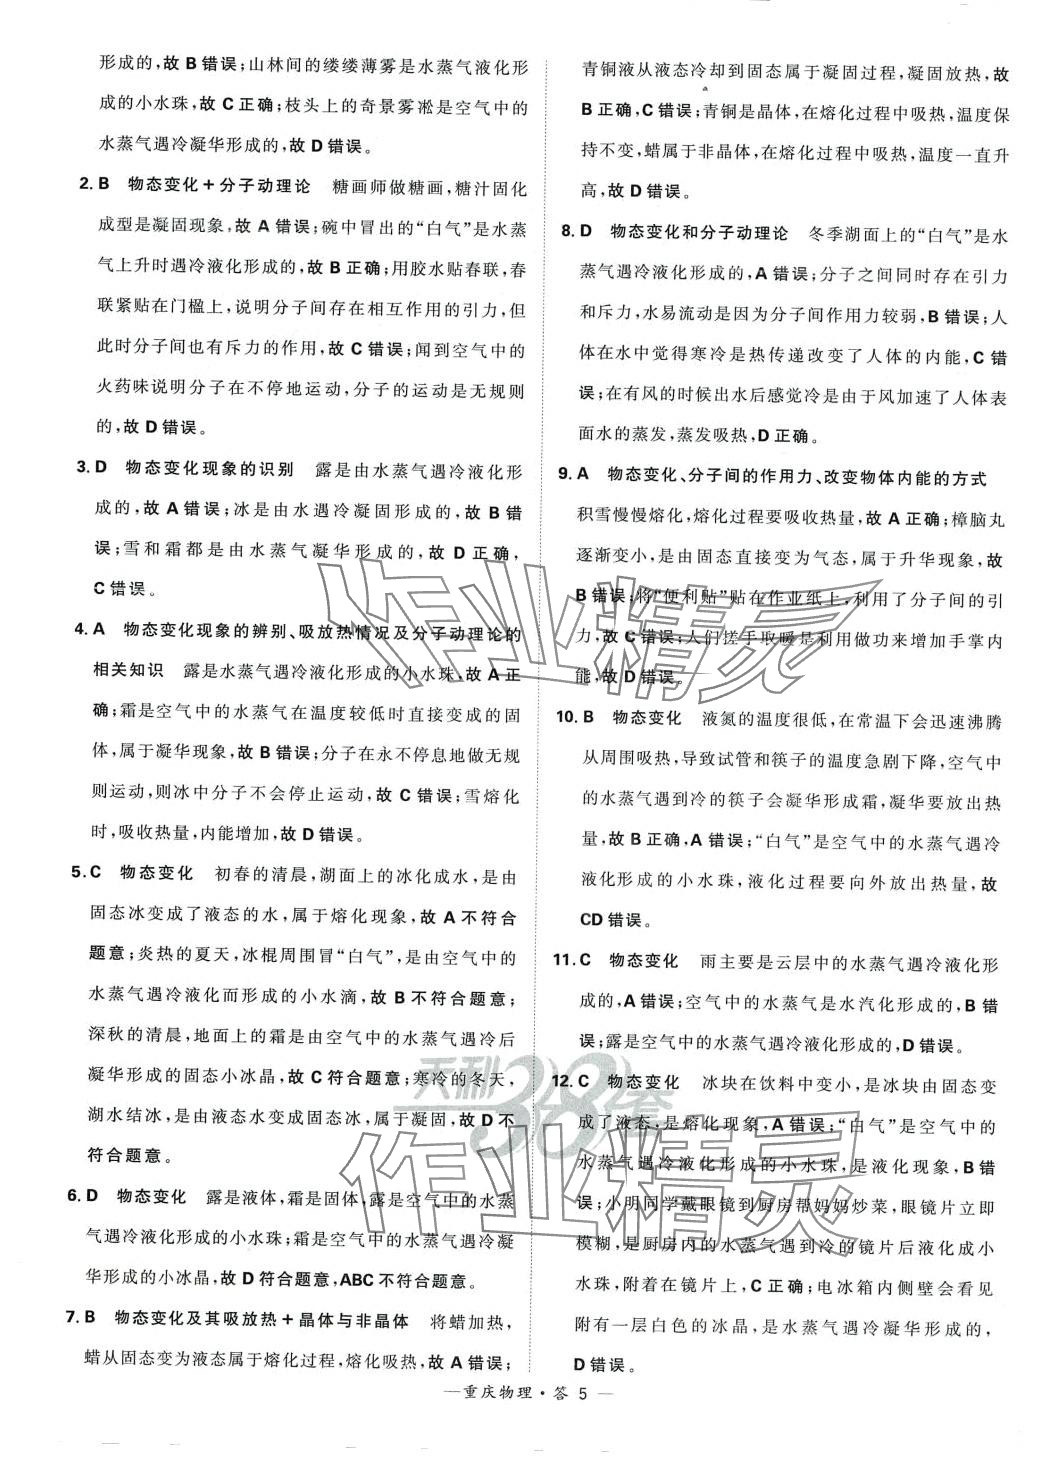 形成的,故 B 错误;山林间的缕缕薄雾是水蒸气液化形
成的小水珠,故 C 正确;枝头上的奇景雾凇是空气中的
水蒸气遇冷凝华形成的,故 D 错误。
2. B 物态变化+分子动理论 糖画师做糖画,糖汁固化
成型是凝固现象,故 A 错误;碗中冒出的“白气”是水蒸
气上升时遇冷液化形成的,故 B 正确;用胶水贴春联,春
联紧贴在门楹上,说明分子间存在相互作用的引力,但
此时分子间也有斥力的作用,故 C 错误;闻到空气中的
火药味说明分子在不停地运动,分子的运动是无规则
的,故 D 错误。
3. D 物态变化现象的识别 露是由水蒸气遇冷液化形
成的,故 A 错误;冰是由水遇冷凝固形成的,故 B 错
误;雪和霜都是由水蒸气凝华形成的,故 D 正确,
C 错误。
4. A 物态变化现象的辨别、吸放热情况及分子动理论的
相关知识 露是水蒸气遇冷液化形成的小水珠,故 A 正
确;霜是空气中的水蒸气在温度较低时直接变成的固
体,属于凝华现象,故 B 错误;分子在永不停息地做无规
则运动,则冰中分子不会停止运动,故 C 错误;雪熔化
时,吸收热量,内能增加,故 D 错误。
5. C 物态变化 初春的清晨,湖面上的冰化成水,是由
固态冰变成了液态的水,属于熔化现象,故 A 不符合
题意;炎热的夏天,冰棍周围冒“白气”,是由空气中的
水蒸气遇冷液化而形成的小水滴,故 B 不符合题意;
深秋的清晨,地面上的霜是由空气中的水蒸气遇冷后
凝华形成的固态小冰晶,故 C 符合题意;寒冷的冬天,
湖水结冰,是由液态水变成固态冰,属于凝固,故 D 不
符合题意。
6. D 物态变化 露是液体,霜是固体,露是空气中的水蒸
气遇冷液化形成的小水珠;霜是空气中的水蒸气遇冷凝
华形成的小冰晶,故 D 符合题意,ABC 不符合题意。
7. B 物态变化及其吸放热+晶体与非晶体 将蜡加热,
蜡从固态变为液态属于熔化过程,熔化吸热,故 A 错误;
青铜液从液态冷却到固态属于凝固过程,凝固放热,故
B 正确,C 错误;青铜是晶体,在熔化过程中吸热,温度保
持不变,蜡属于非晶体,在熔化过程中吸热,温度一直升
高,故 D 错误。
8. D 物态变化和分子动理论 冬季湖面上的“白气”是水
蒸气遇冷液化形成的,A 错误;分子之间同时存在引力
和斥力,水易流动是因为分子间作用力较弱,B 错误;人
体在水中觉得寒冷是热传递改变了人体的内能,C 错
误;在有风的时候出水后感觉冷是由于风加速了人体表
面水的蒸发,蒸发吸热,D 正确。
9. A 物态变化、分子间的作用力、改变物体内能的方式
积雪慢慢熔化,熔化过程要吸收热量,故 A 正确;樟脑丸
逐渐变小,是由固态直接变为气态,属于升华现象,故
B 错误;将“便利贴”贴在作业纸上,利用了分子间的引
力,故 C 错误;人们搓手取暖是利用做功来增加手掌内
能,故 D 错误。
10. B 物态变化 液氮的温度很低,在常温下会迅速沸腾
从周围吸热,导致试管和筷子的温度急剧下降,空气中
的水蒸气遇到冷的筷子会凝华形成霜,凝华要放出热
量,故 B 正确,A 错误;“白气”是空气中的水蒸气遇冷
液化形成的小水珠,液化过程要向外放出热量,故
CD 错误。
11. C 物态变化 雨主要是云层中的水蒸气遇冷液化形
成的,A 错误;空气中的水蒸气是水汽化形成的,B 错
误;露是空气中的水蒸气遇冷液化形成的,D 错误。
12. C 物态变化 冰块在饮料中变小,是冰块由固态变
成了液态,是熔化现象,A 错误;“白气”是空气中的
水蒸气遇冷液化形成的小水珠,是液化现象,B 错
误;小明同学戴眼镜到厨房帮妈妈炒菜,眼镜片立即
模糊,是厨房内的水蒸气遇到冷的镜片后液化成小
水珠,附着在镜片上,C 正确;电冰箱内侧壁会看见
附有一层白色的冰晶,是水蒸气遇冷凝华形成的,
D 错误。
作业精灵
天利38套
作业精灵
—重庆物理·答 5 —